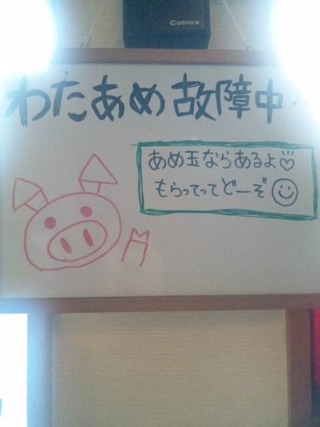 Coblex
わたあめ故障中…
あめ玉ならあるよ♡
もらってってどーぞ☺